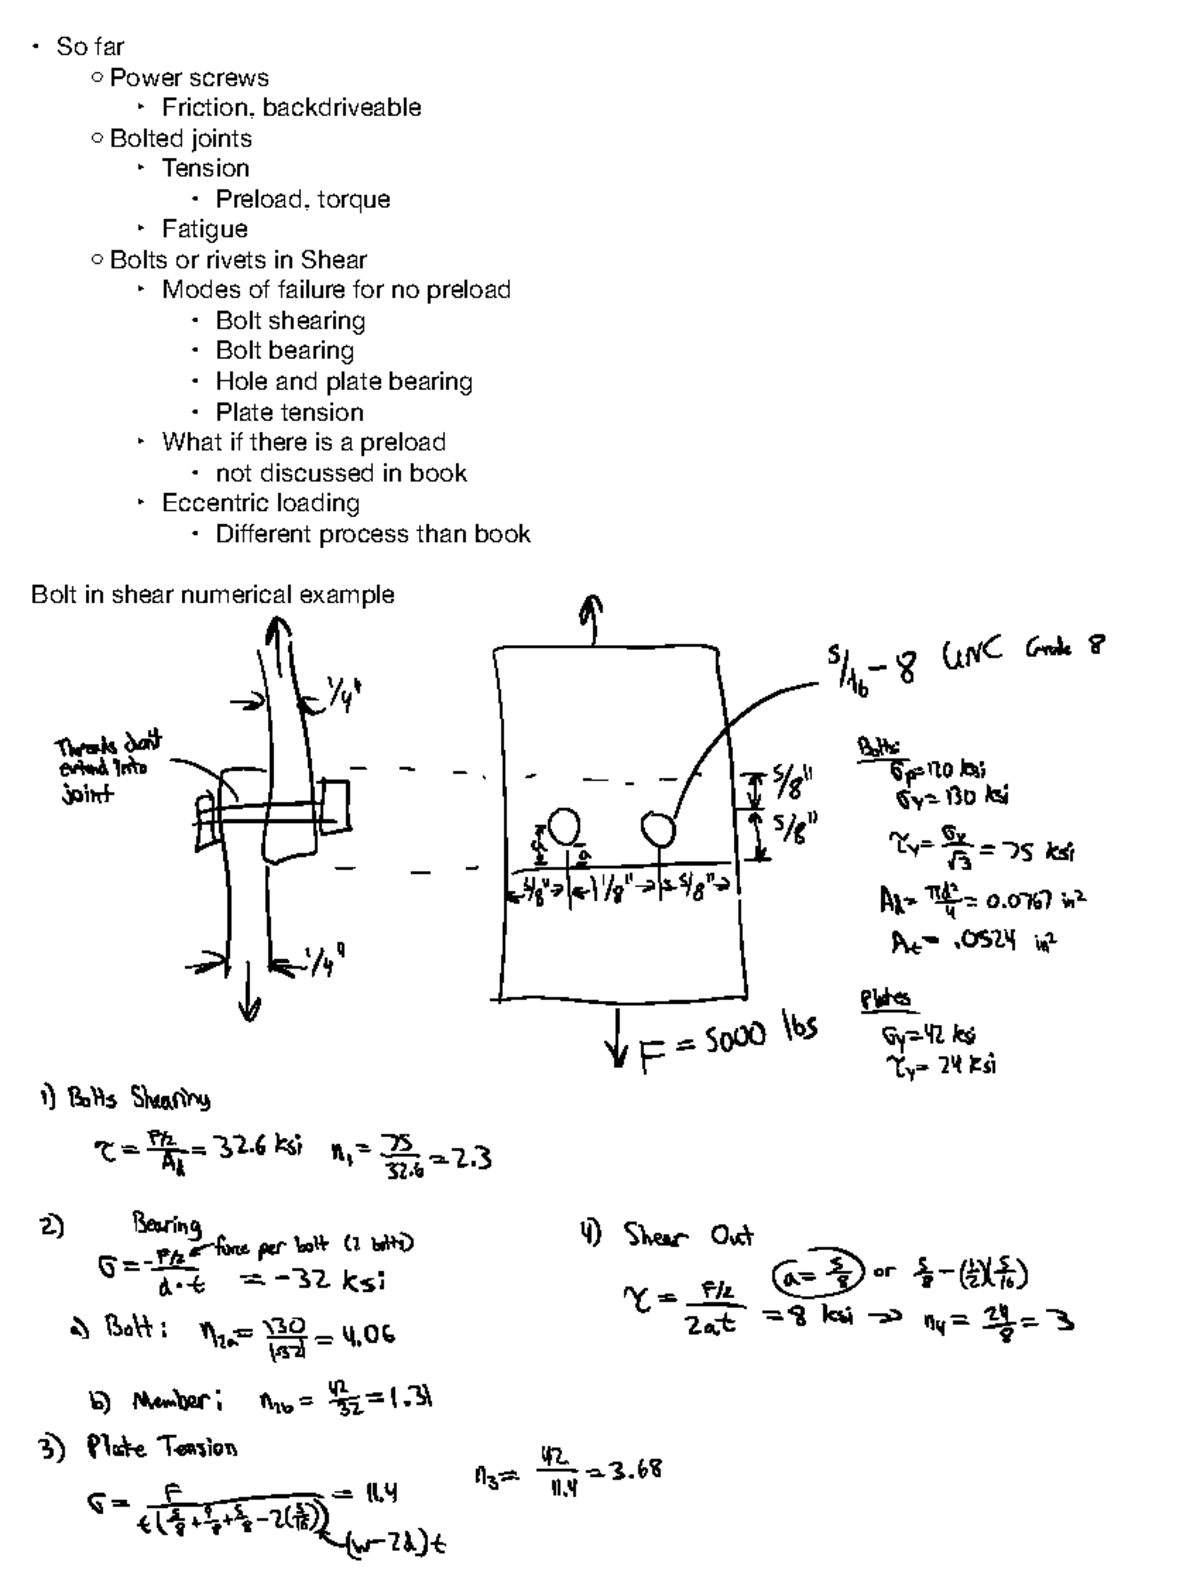 • So far
○ Power screws
‣ Friction, backdriveable
○ Bolted joints
‣ Tension
• Preload, torque
‣ Fatigue
○ Bolts or rivets in Shear
‣ Modes of failure for no preload
• Bolt shearing
• Bolt bearing
• Hole and plate bearing
• Plate tension
‣ What if there is a preload
• not discussed in book
‣ Eccentric loading
• Different process than book
Bolt in shear numerical example
5/16 - 8 UNC Grade 8
1/4"
Threads don't
extend into
joint
5/8"
5/8"
a
a
5/8" 1 1/8" 5/8"
1/4"
F = 5000 lbs
Bolts:
σp = 120 ksi
σy = 130 ksi
τy = σy/√3 = 75 ksi
Ad = πd²/4 = 0.0767 in²
At = .0524 in²
Plates
σy = 42 ksi
τy = 24 ksi
1) Bolts Shearing
τ = F/2 / Ad = 32.6 ksi n1 = 75/32.6 = 2.3
2) Bearing
σ = - F/2 / d·t ← force per bolt (2 bolts) = -32 ksi
a) Bolt: n2a = 130/|-32| = 4.06
b) Member: n2b = 42/32 = 1.31
3) Plate Tension
σ = F / t(5/8 + 9/8 + 5/8 - 2(5/16)) = 11.4 n3 = 42/11.4 = 3.68
(w-2d)t
4) Shear Out
a = 5/8 or 5/8 - (1/2)(5/16)
τ = F/2 / 2at = 8 ksi → n4 = 24/8 = 3